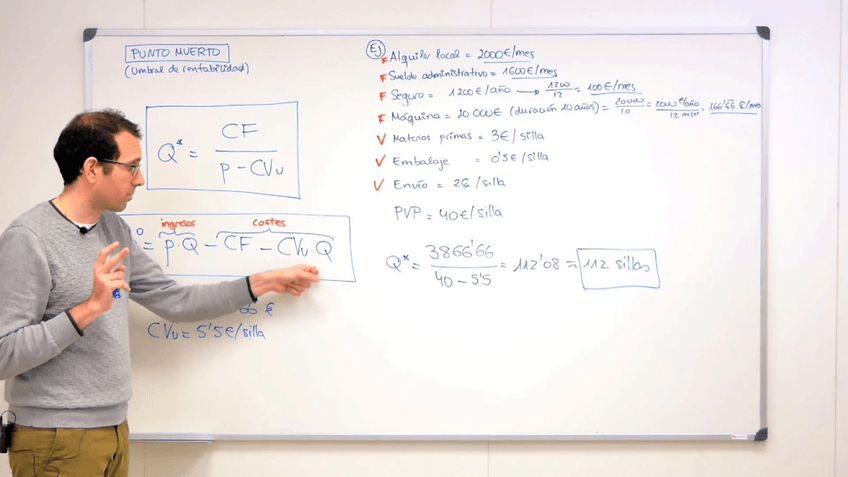 PUNTO MUERTO
(Umbral de rentabilidad)
Q* = CF / p - CVu
ingresos costes
0 = p·Q - CF - CVu·Q
66 €
CVu = 5'5€/silla
Ej
F Alquiler local = 2000€/mes
F Sueldo administrativo = 1600€/mes
F Seguro = 1200€/año → 1200/12 = 100€/mes
F Máquina = 20000€ (duración 10 años) = 20000/10 = 2000€/año / 12 mes = 166'66 €/mes
V Materias primas = 3€/silla
V Embalaje = 0'5€/silla
V Envío = 2€/silla
PVP = 40€/silla
Q* = 3866'66 / 40 - 5'5 = 112'08 ≈ 112 sillas